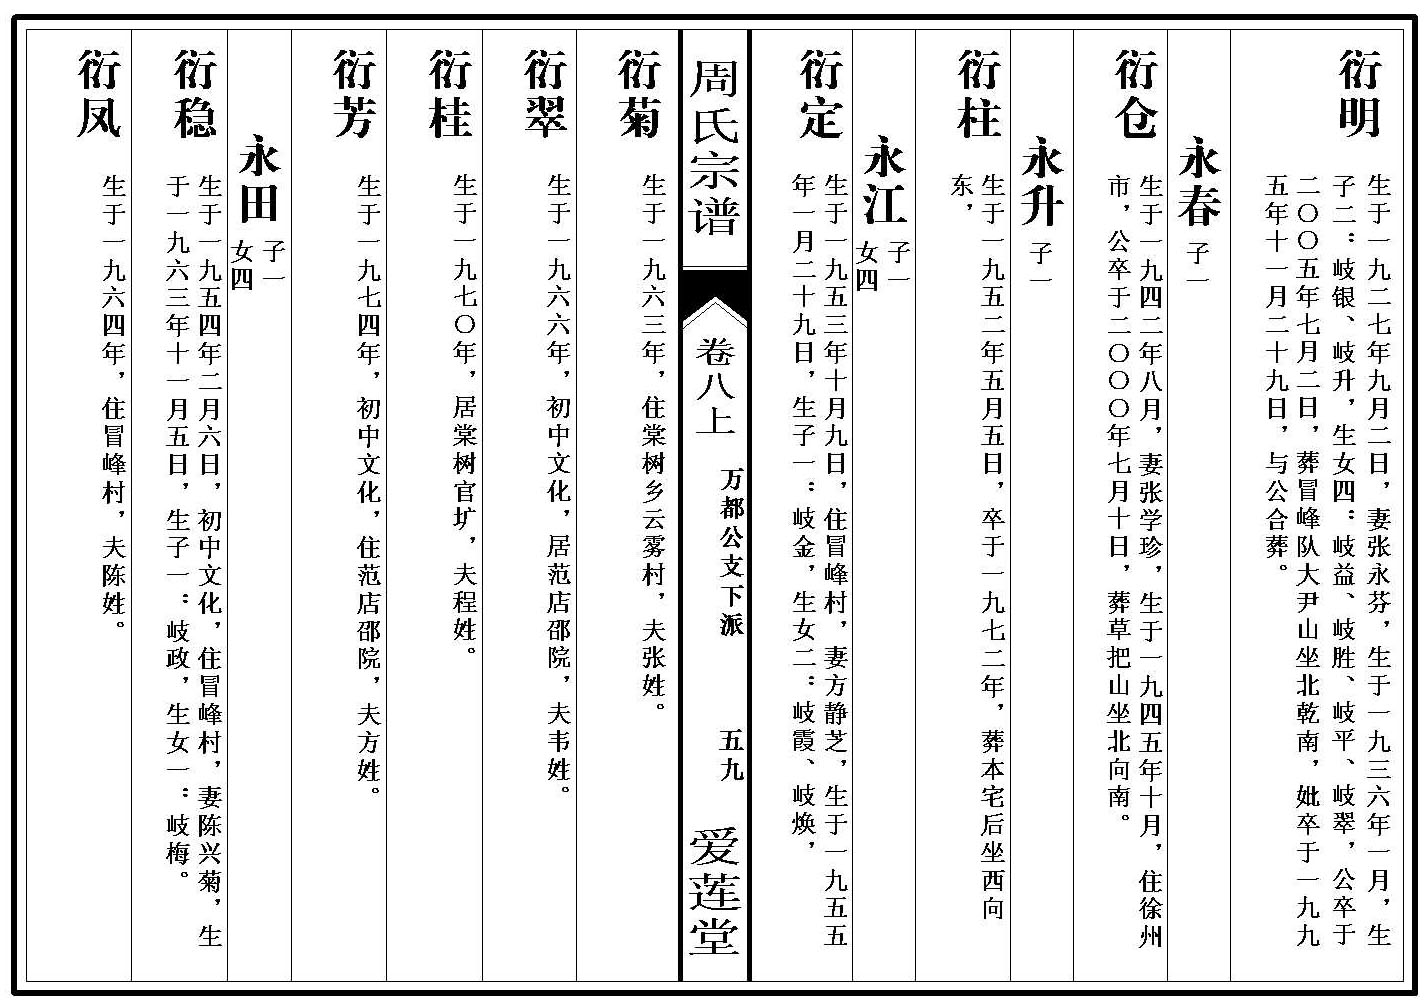 衍明
生于一九二七年九月二日，妻张永芬，生于一九三六年一月，生
子二：岐银、岐升，生女四：岐益、岐胜、岐平、岐翠，公卒于
二〇〇五年七月二日，葬冒峰队大尹山坐北乾南，妣卒于一九九
五年十一月二十九日，与公合葬。
永春
子一
衍仓
生于一九四二年八月，妻张学珍，生于一九四五年十月，住徐州
市，公卒于二〇〇〇年七月十日，葬草把山坐北向南。
永升
子一
衍柱
生于一九五二年五月五日，卒于一九七二年，葬本宅后坐西向
东，
永江
子一
女四
衍定
生于一九五三年十月九日，住冒峰村，妻方静芝，生于一九五五
年一月二十九日，生子一：岐金，生女二：岐霞、岐焕，
周氏宗谱
卷八上
万都公支下派
五九
爱莲堂
衍菊
生于一九六三年，住棠树乡云雾村，夫张姓。
衍翠
生于一九六六年，初中文化，居范店邵院，夫韦姓。
衍桂
生于一九七〇年，居棠树官圹，夫程姓。
衍芳
生于一九七四年，初中文化，住范店邵院，夫方姓。
永田
子一
女四
衍稳
生于一九五四年二月六日，初中文化，住冒峰村，妻陈兴菊，生
于一九六三年十一月五日，生子一：岐政，生女一：岐梅。
衍凤
生于一九六四年，住冒峰村，夫陈姓。